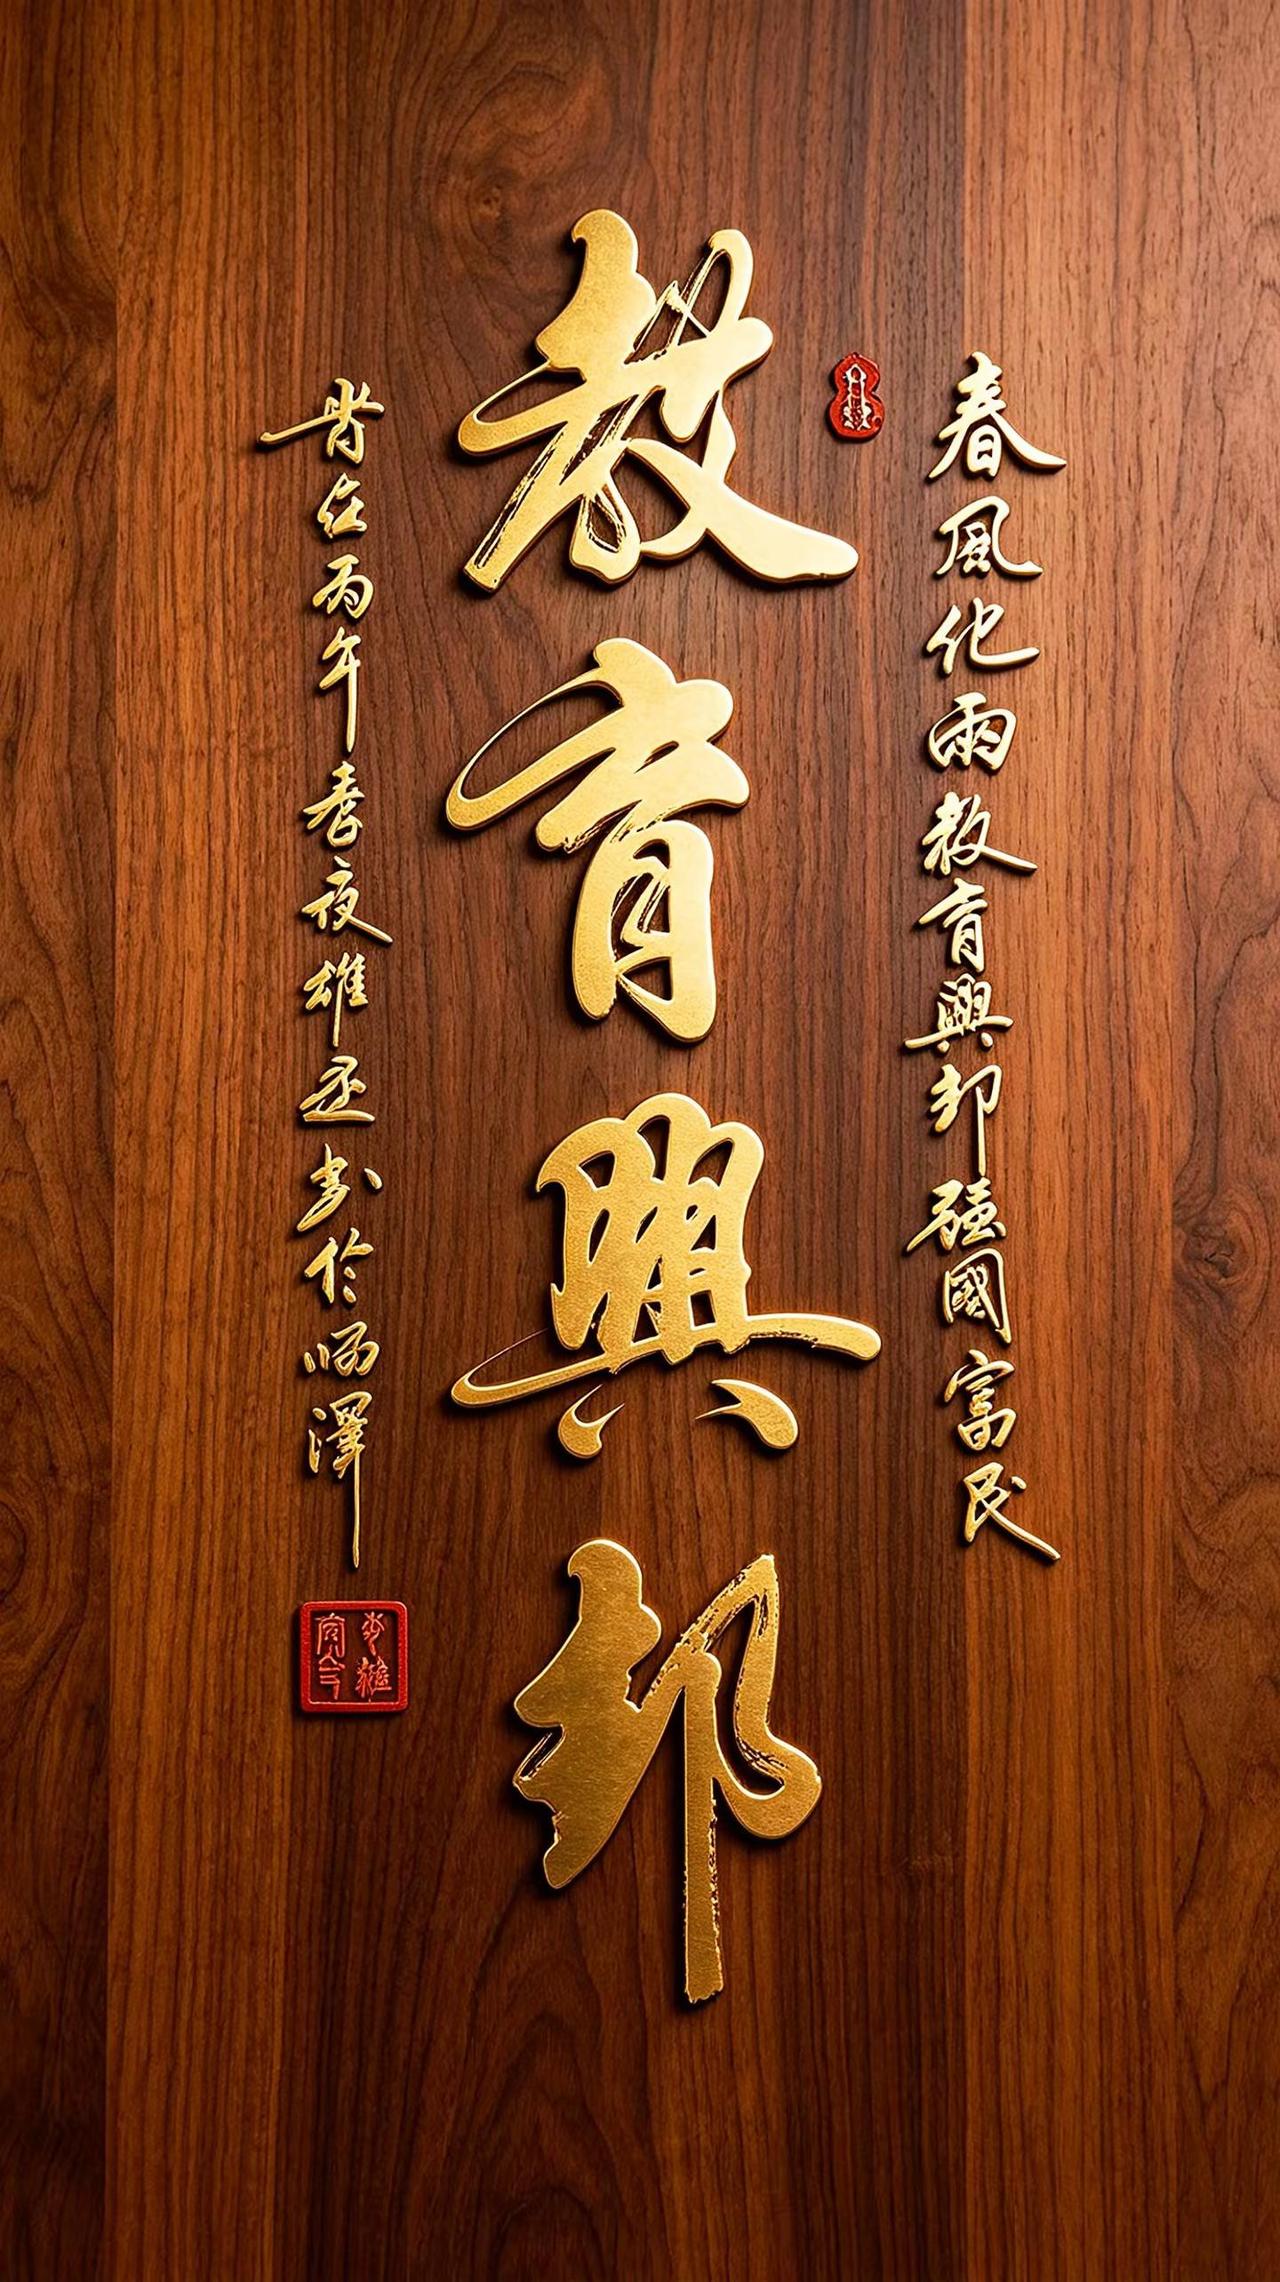 春風化雨教育興邦强國富民
教育興邦
在丙午春夜雄丞书於澤